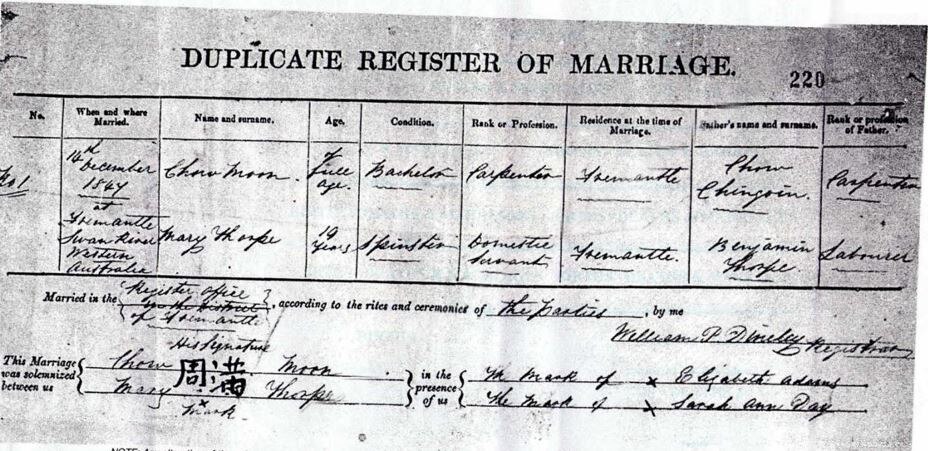 DUPLICATE REGISTER OF MARRIAGE.
220
No.
When and where Married.
Name and surname.
Age.
Condition.
Rank or Profession.
Residence at the time of Marriage.
Father's name and surname.
Rank or profession of Father.
No 1
14th December 1847 at Fremantle Swan River Western Australia
Chow Moon.
of full age.
Bachelor
Carpenter
Fremantle
Chow Chingoin.
Carpenter
Mary Thorpe
19 Years
Spinster
Domestic Servant
Fremantle.
Benjamin Thorpe
Labourer
Married in the Register office of Fremantle, according to the rites and ceremonies of the Parties, by me
William P. Dineley Registrar
His Signature
This Marriage was solemnized between us
Chow 周 Moon
Mary x Thorpe
Mark
in the presence of us
The mark of x Elizabeth Adams
The mark of x Sarah Ann Day